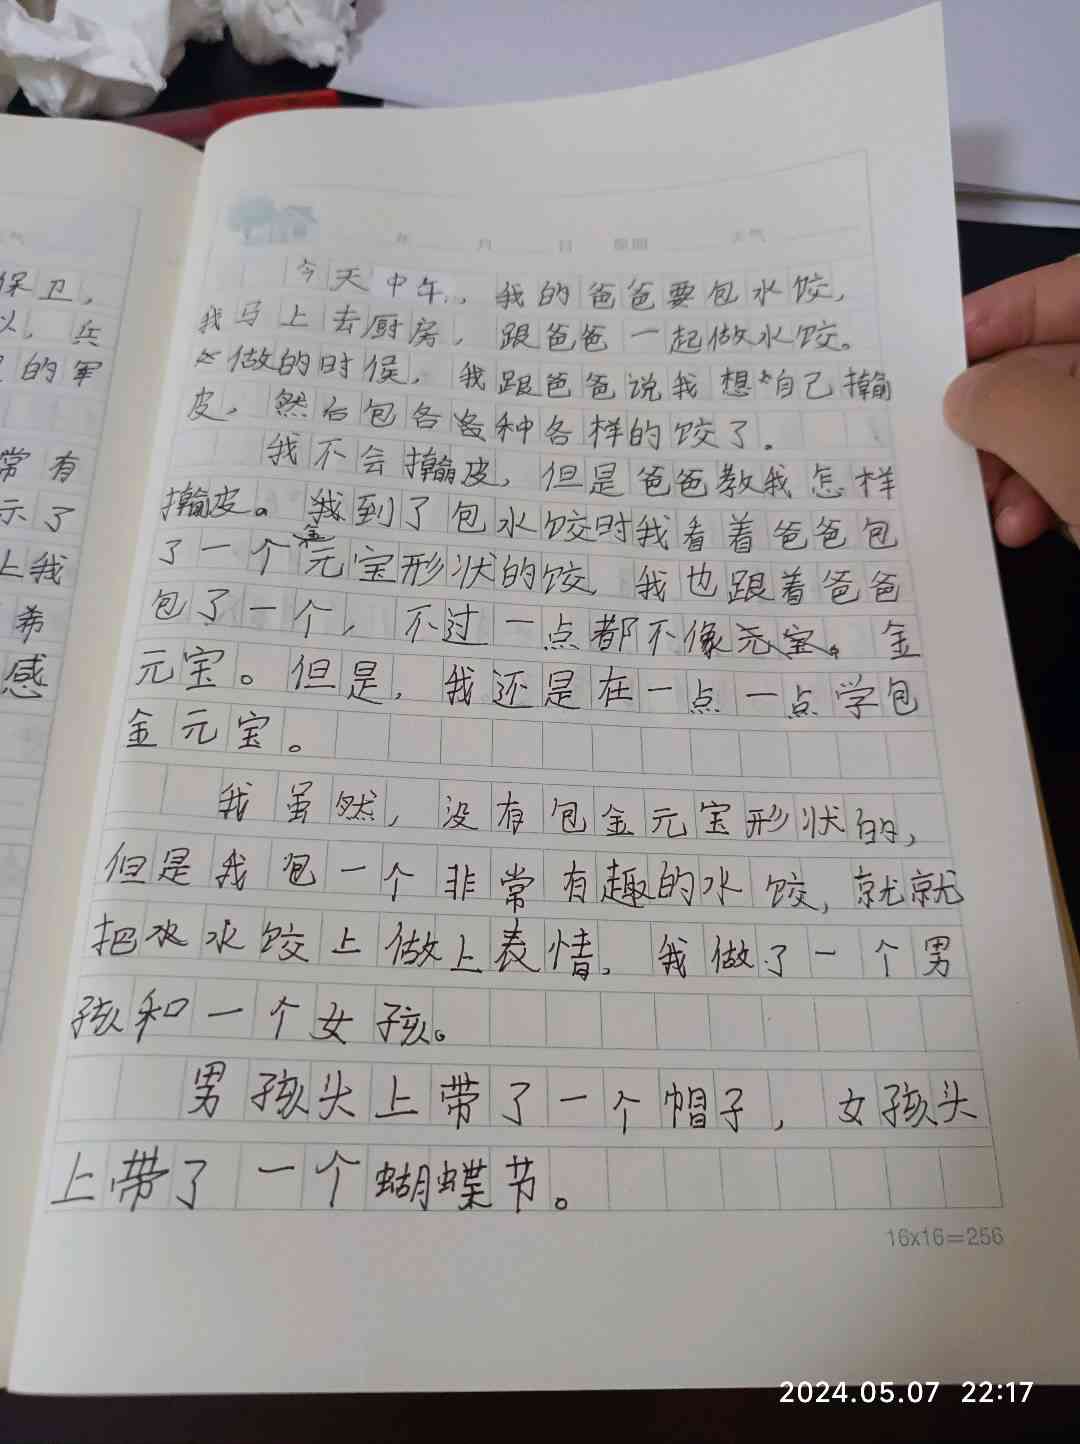 保卫，
以，兵
的军
常有
示了
上我
希
感
年 月 日 星期 天气
今天中午，我的爸爸要包水饺，
我马上去厨房，跟爸爸一起做水饺。
做的时候，我跟爸爸说我想自己擀
皮，然后包各各种各样的饺了．
我不会擀皮，但是爸爸教我怎样
擀皮。我到了包水饺时我看着爸爸包
了一个金元宝形状的饺 我也跟着爸爸
包了一个，不过一点都不像元宝。金
元宝。但是，我还是在一点一点学包
金元宝。
我虽然，没有包金元宝形状的，
但是我包一个非常有趣的水饺，就就
把水水饺上做上表情。我做了一个男
孩和一个女孩。
男孩头上带了一个帽子，女孩头
上带了一个蝴蝶节。
16x16=256
2024.05.07 22:17